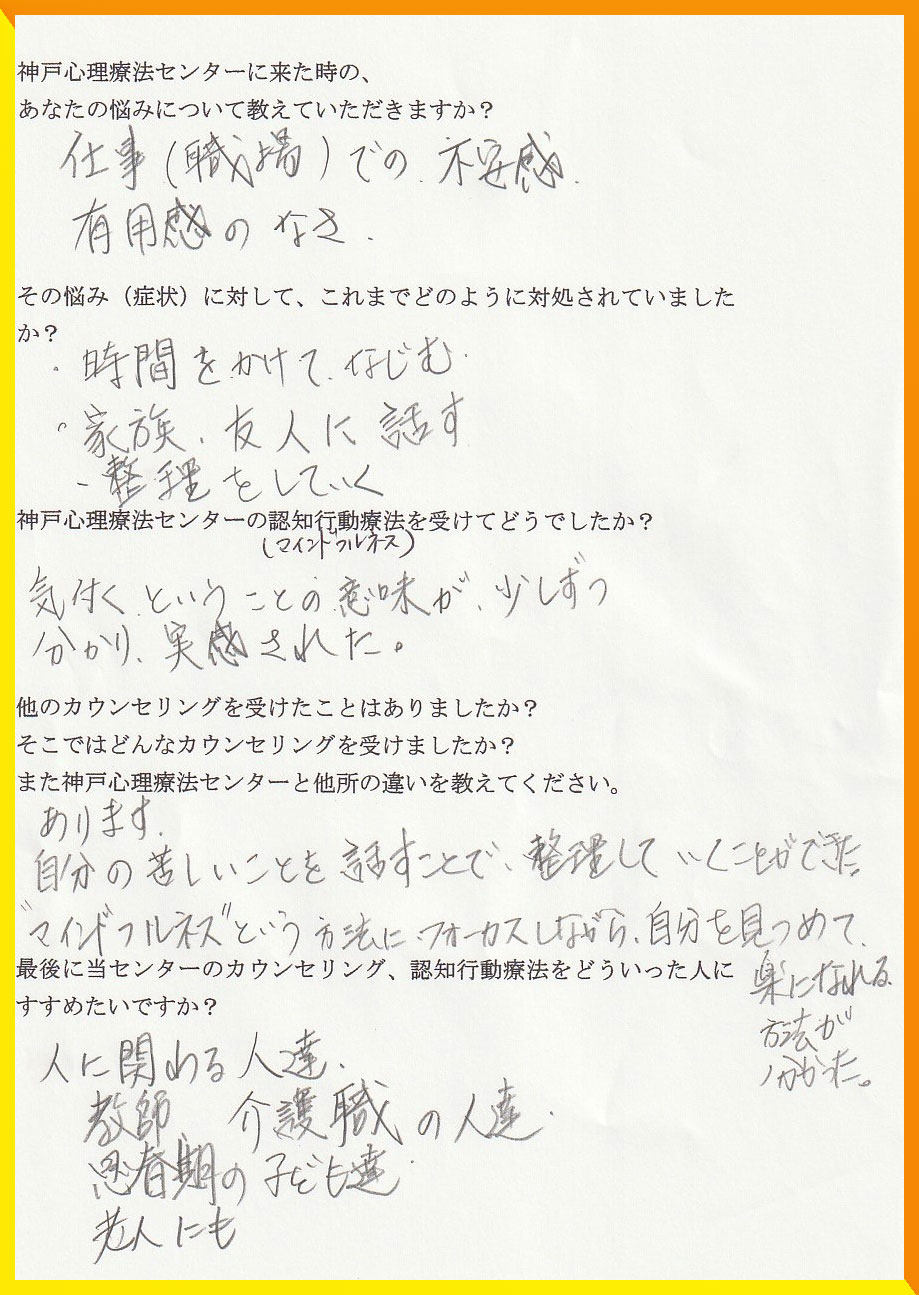 神戸心理療法センターに来た時の、
あなたの悩みについて教えていただきますか？
仕事(職場)での 不安感.
有用感の なさ.
その悩み（症状）に対して、これまでどのように対処されていました
か？
・時間をかけて、なじむ.
・家族、友人に 話す
-整理をしていく
神戸心理療法センターの認知行動療法を受けてどうでしたか？
(マインドフルネス)
気付く ということの 意味が、少しずつ
分かり、実感された。
他のカウンセリングを受けたことはありましたか？
そこではどんなカウンセリングを受けましたか？
また神戸心理療法センターと他所の違いを教えてください。
あります.
自分の苦しいことを話すことで、整理して いくことができた
"マインドフルネス"という 方法に、フォーカスしながら、自分を見つめて、
楽になれる
方法が
分かった。
最後に当センターのカウンセリング、認知行動療法をどういった人に
すすめたいですか？
人に関わる人達.
教師 介護職の人達.
思春期の子ども達
老人にも